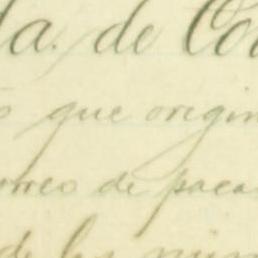 da. de Co
que origin
orreo de paca
de los